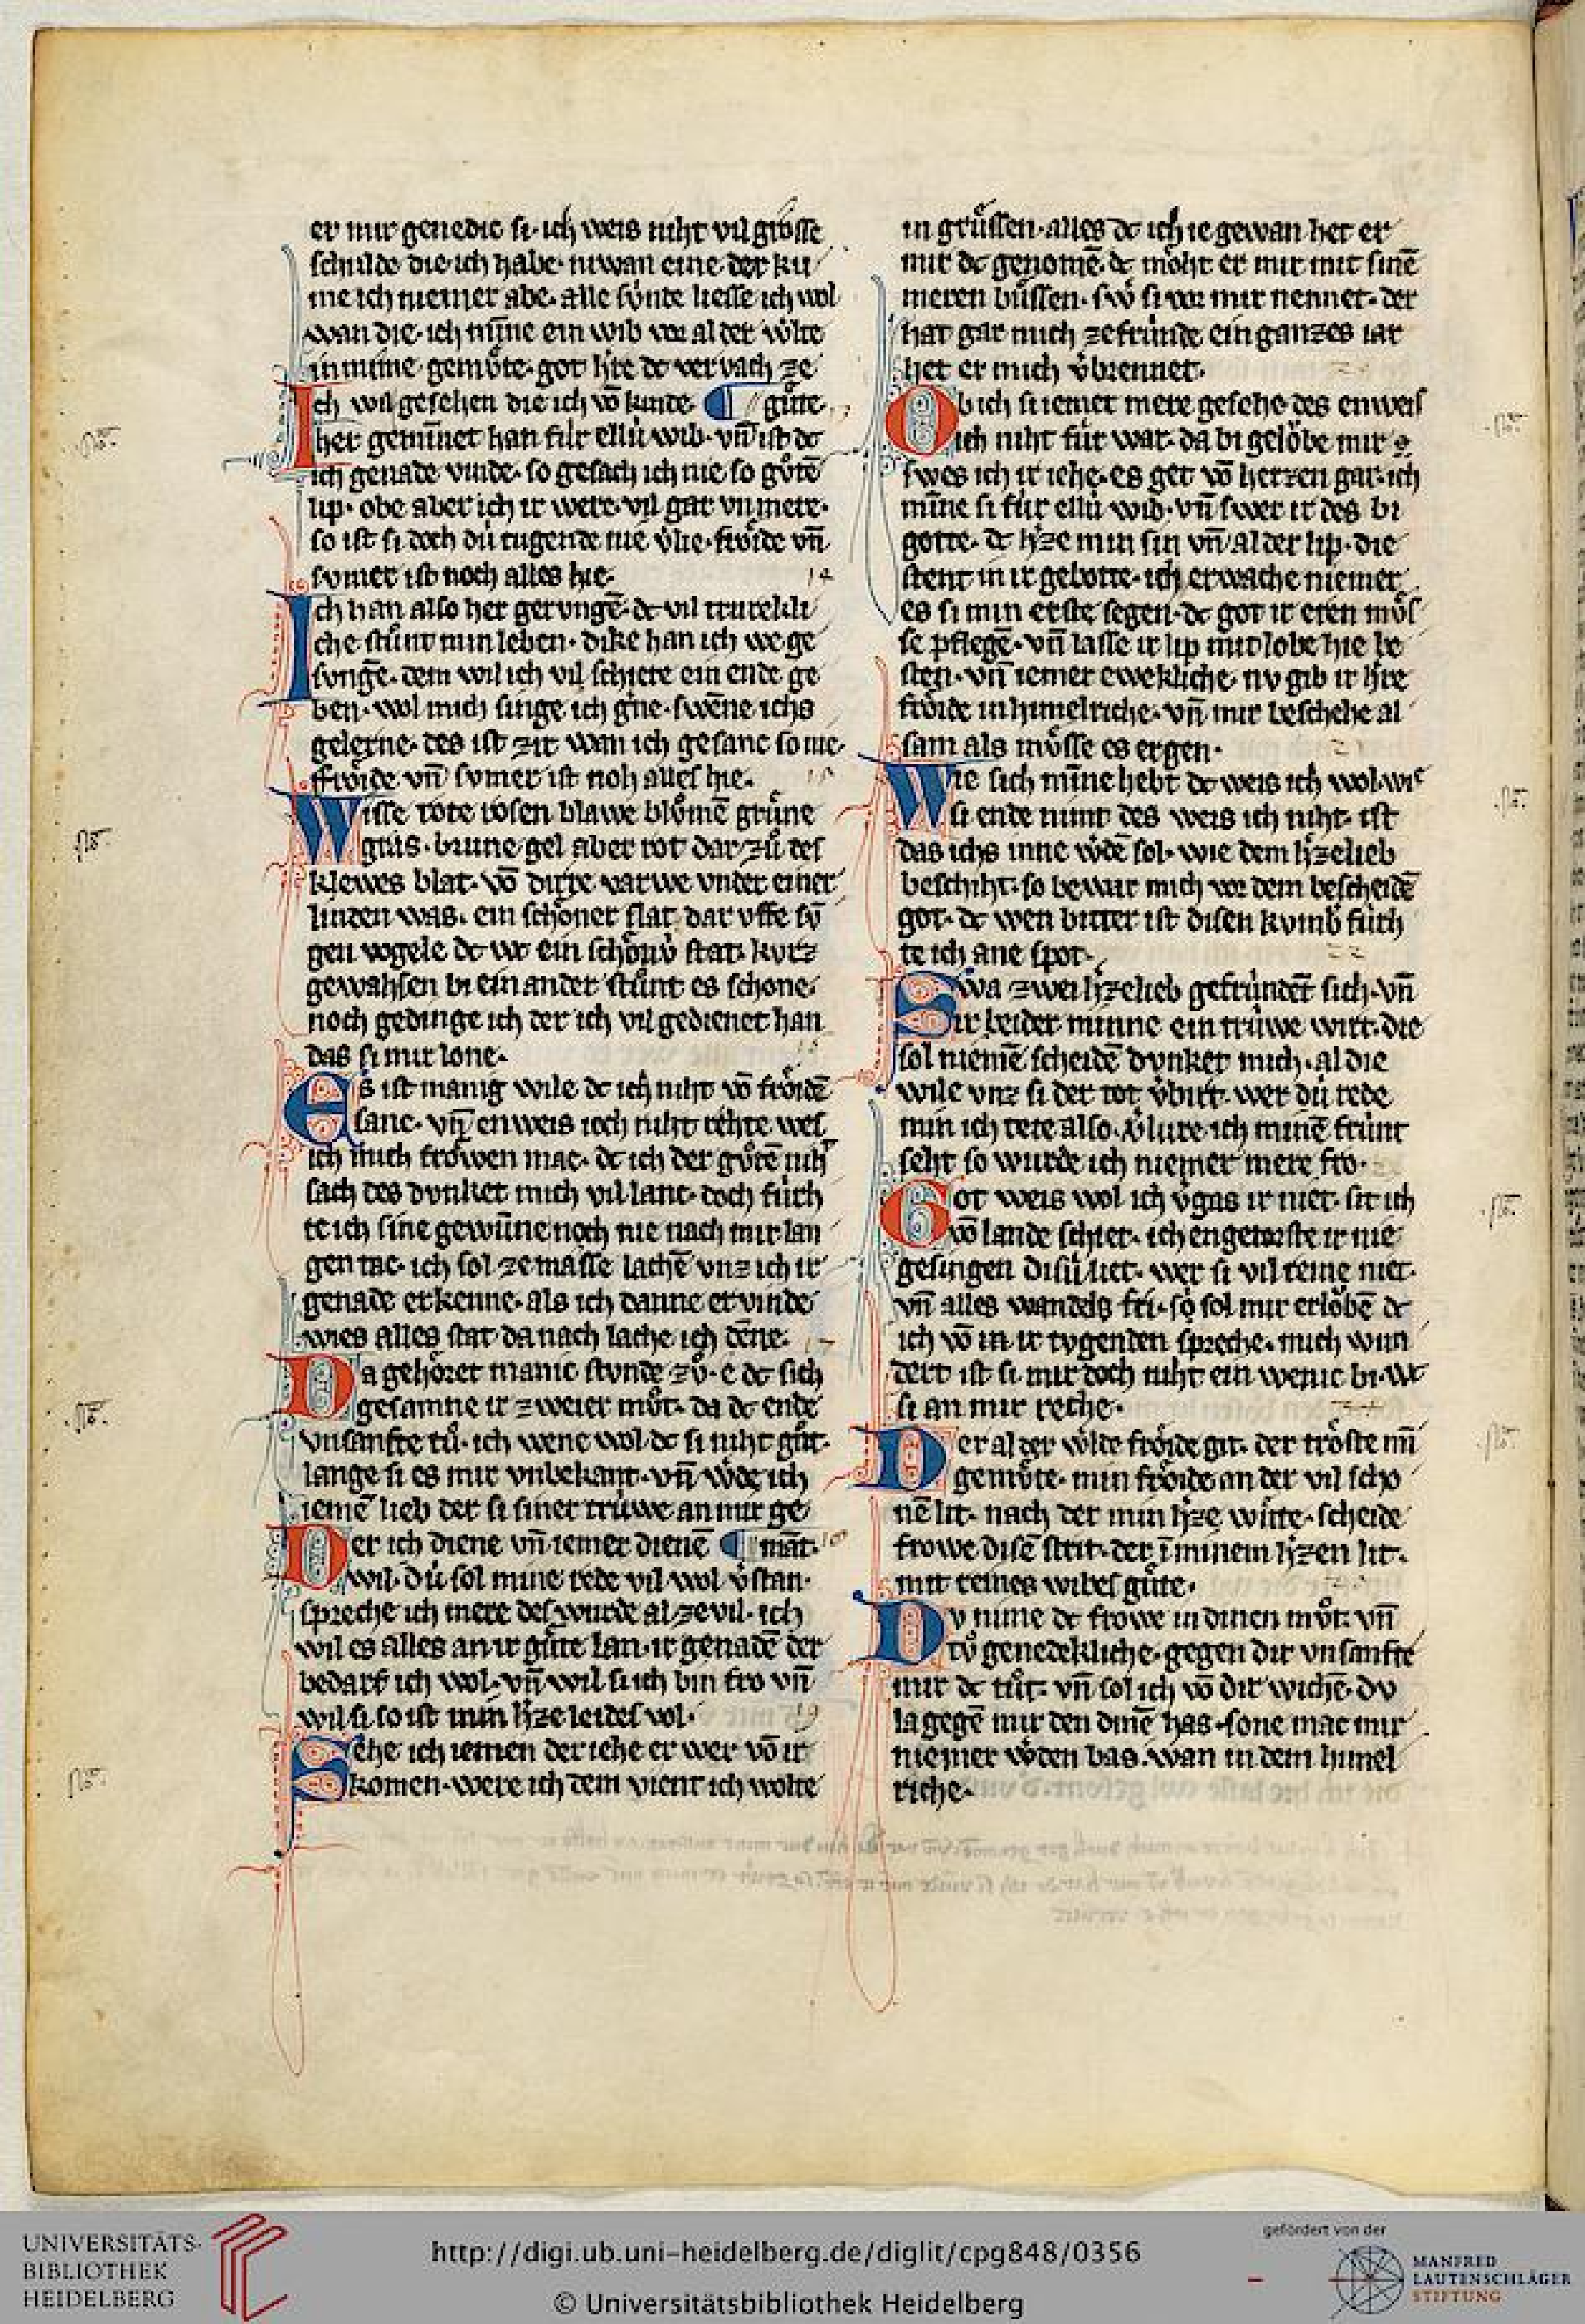 er mir genedic si· ich weis niht vil grosse
schulde die ich habe· niwan eine der ku
me ich niemer abe· alle súnde liesse ich wol
wan die· ich mīne ein wib vor al der w̓lte
in mime gemuͤte· got h̓re dc vervach ze
Ich wil gesehen die ich vō kinde ¶ guͤte·
her geminnet han fúr ellú wib· vn̄ ist dc
ich genade vinde· so gesach ich nie so guͦtē
lip· obe aber ich ir were· vil gar vnmere·
so ist si doch dú tugende nie v̓lie· froͤide vn̄
sumer ist noch alles hie· 14
Ich han also her gerungē· dc vil trurekli
che stuͦnt min leben· dike han ich we ge
sungē· dem wil ich vil schiere ein ende ge
ben· wol mich singe ich g̓ne· swēne ichs
gelerne· des ist zit wan ich gesanc so nie·
froͤide vn̄ sumer ist noh alles hie· 15
Wisse rote rosen blawe bluͦmē gruͤne
gras· brune gel aber rot dar zuͦ des
klewes blat· vō dirre varwe vnder einer
linden was· ein schoͤner flat dar vffe sv̄
gen vogele dc wc ein schoͤnv̓ stat· kurz
gewahsen bi einander stuͦnt es schone·
noch gedinge ich der ich vil gedienet han
das si mir lone·
Es ist manig wile dc ich niht vō froͤidē
sanc· vn̄ enweis ioch niht rehte wes
ich mich froͤwen mac· dc ich der guͦtē niht
sach des dvnket mich vil lanc· doch fúrh
te ich sine gewūne noch nie nach mir lan
gen tac· ich sol ze masse lachē vnz ich ir
genade erkenne· als ich danne ervinde
wies alles stat da nach lache ich dēne· 17
Da gehoͤret manic stvnde zuͦ· e dc sich
gesamne ir zweier muͦt· da dc ende
vnsanfte tuͦ· ich wene wol dc si niht guͦt·
lange si es mir vnbekant· vn̄ w̓de ich
iemē lieb der si siner trúwe an mir ge
Der ich diene vn̄ iemer dienē ¶ māt·
wil· dú sol mine rede vil wol v̓stan·
spreche ich mere des wurde al ze vil· ich
wil es alles an ir guͤte lan· ir genadē der
bedarf ich wol· vn̄ wil si ich bin fro vn̄
wil si so ist min h̓ze leides vol· 19
Sehe ich iemen der iehe er wer vō ir
komen· were ich dem vient ich wolte
in gruͤssen· alles dc ich ie gewan het er
mir dc genomē· dc moͤht er mir mit sinē
meren buͤssen· sw̓ si vor mir nennet· der
hat gar mich ze frúnde ein ganzes iar
het er mich v̓brennet·
Ob ich si iemer mere gesehe des enweis
ich niht fúr war· da bi geloͮbe mir
swes ich ir iehe· es get vō herzen gar· ich
mīne si fúr ellú wib· vn̄ swer ir des bi
gotte· dc h̓ze min sin vn̄ al der lip· die
stent in ir gebotte· ich erwache niemer
es si min erste segen· dc got ir eren muͤs
se pflegē· vn̄ lasse ir lip mit lobe hie be
sten· vn̄ iemer ewekliche· nv gib ir h̓re
froͤide in himelriche· vn̄ mir beschehe al
sam als muͤsse es ergen· 21
Wie sich mīne hebt dc weis ich wol· wie
si ende nimt des weis ich niht· ist
das ichs inne w̓dē sol· wie dem h̓zelieb
beschiht· so bewar mich vor dem bescheidē
got· dc wen bitter ist disen kvmb̓ fúrh
te ich ane spot· 22
Swa zwei h̓zelieb gefrúndēt sich· vn̄
ir beider minne ein trúwe wirt· die
sol niemē scheidē dvnket mich· al die
wile vnz si der tot v̓birt· wer dú rede
min ich tete also· v̓lure ich minē frúnt
seht so wurde ich niemer mere fro·
Got weis wol ich v̓gas ir niet· sit ich
vō lande schiet· ich engetorste ir nie
gesingen disú liet· wer si vil reine niet·
vn̄ alles wandels fri· so sol mir erloͮbē dc
ich vō in ir tvgenden spreche· mich wun
dert ist si mir doch niht ein wenic bi· wc
si an mir reche·
Der al der w̓lde froͤide git· der troͤste mī
gemuͤte· min froͤide an der vil scho
nē lit· nach der min h̓ze wͤtte· scheide
frowe disē strit· der ī minem h̓zen lit·
mit reines wibes guͤte·
Dv nime dc frowe in dinen muͦt· vn̄
tuͦ genedekliche· gegen dir vnsanfte
mir dc tuͦt· vn̄ sol ich vō dir wichē· dv
la gegē mir den dinē has· sone mac mir
niemer w̓den bas· wan in dem himel
riche·
UNIVERSITÄTS-
BIBLIOTHEK
HEIDELBERG
http://digi.ub.uni-heidelberg.de/diglit/cpg848/0356
© Universitätsbibliothek Heidelberg
gefördert von der
MANFRED
LAUTENSCHLÄGER
STIFTUNG